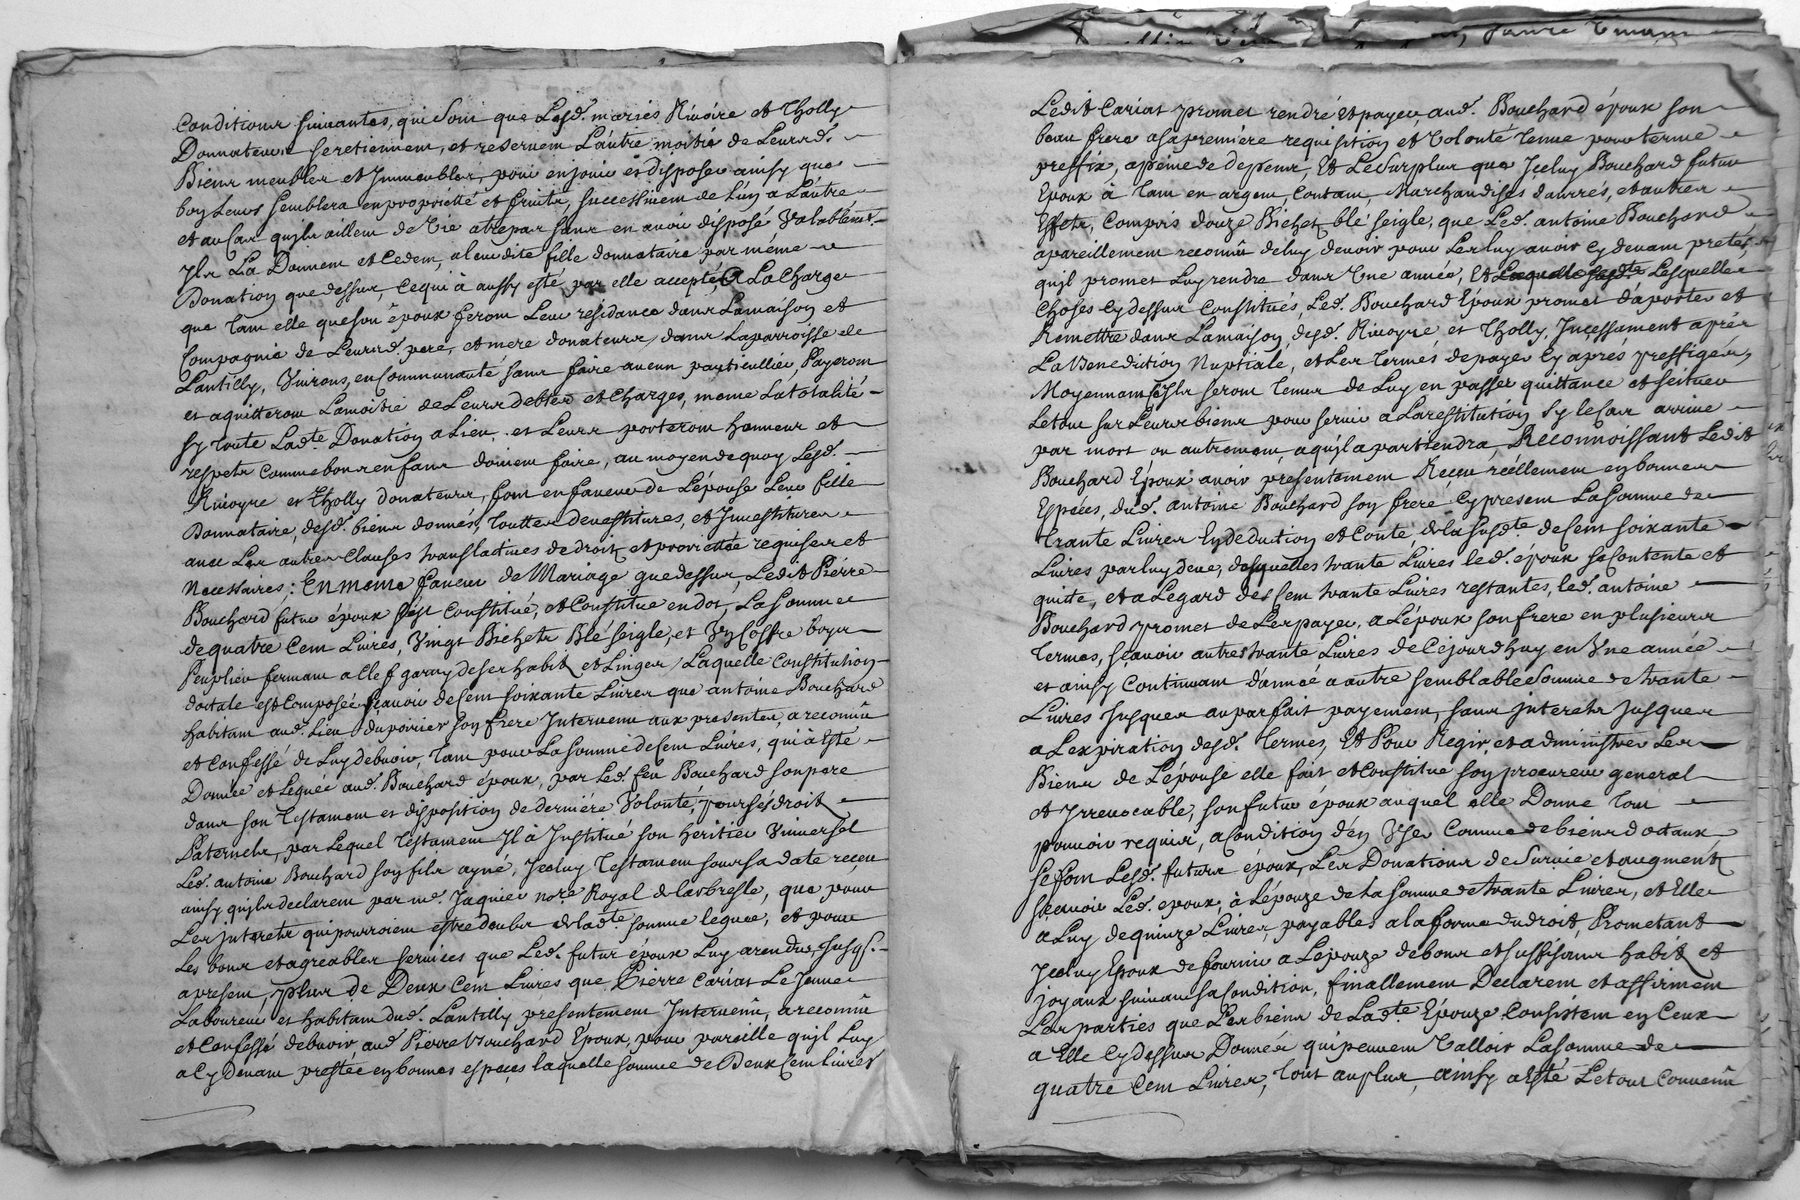 Conditions suivantes, qui Sont que Lesd. mariés Rivoire et Tholly
Donnateurs se retiennent, et reservent L'autre moitié de Leursd.
Biens meubles et Immeubles, pour enjouir et disposer ainsy que
bon Leurs Semblera en proprietté et fruits, successivement de L'un a L'autre
et au Cas qu'ils aillent de Vie atrepas sans en avoir disposé Valablemt.
Ils La Donnent et Cedent, a leurdite fille donnataire par même
Donation que dessus, Cequi à aussy esté par elle accepté, A La Charge
que tant elle que son époux feront Leur residance dans Lamaison et
Compagnie de Leursd. pere, et mere donateurs, dans Laparroisse de
Lantilly, Vivront, en Communauté sans faire aucun particullier, Payeront
et aquitteront Lamoitié de Leurs debtes et Charges, meme Latotalité
sy toute Ladte. Donation a Lieu, et Leurs porteront Honneur et
respets comme bons enfans doivent faire, au moyen dequoy Lesd.
Rivoyre et Tholly donateurs, font en faveur de L'épouse Leur fille
Donnataire, desd. biens donnés, touttes devestitures, et Investitures
avec Les autres Clauses translatives de droit et proriettée requises et
Necessaires: En meme faveur de Mariage que dessus, Ledit Pierre
Bouchard futur époux s'est Constitué, et Constitue en dot, La Somme
de quatre Cent Livres, Vingt Bichets Blé Seigle, et Un Coffre boys
Peuplier fermant a Clef garny de ses habits et Linges, Laquelle Constitution
dotale est Composée scavoir de sent soixante Livres que antoine Bouchard
habitant aud. Lieu du poirier son frere Intervenu aux presentes, a reconnû
et Confessé de Luy debvoir, tant pour La Somme de sent Livres, qui à Esté
Donnée et Leguée aud. Bouchard époux, par Led. feu Bouchard son pere
dans son testament et disposition de derniére Volonté, pour sés droits
Paternels, par Lequel testament Il à Institué son heritier Universel
Led. antoine Bouchard son fils ayné, Iceluy Testament sous sa date receu
ainsy qu'ils declarent par me. Jaquier nore. Royal de Larbresle, que pour
Les Interets qui pourroient estre deubs de lad.te somme leguée, et pour
Les bons et agreables services que Led. futur époux Luy a rendus, Jusqs.
a present, plus de Deux Cent Livres que Pierre Cariat Le Jeune
Laboureur et habitant dud. Lantilly presentement Intervenû, a reconnû
et Confessé debvoir aud. Pierre Bouchard Époux, pour pareille qu'il Luy
a Cy devant prestée en bonnes espéces laquelle somme de Deux Cent Livres
Ledit Cariat promet rendre et payer aud. Bouchard époux son
beau frere asa premiére requisition et Volonté tenue pour terme
preffix, apeine de depens, Et Le surplus que Iceluy Bouchard futur
Epoux à tant en argent, Contant, Marchandises, danrés, et autres
Effets, Compris douze Bichets blé seigle, que Led. antoine Bouchard
apareillement reconnu deluy devoir pour Lesluy avoir Cy devant pretés,
qu'il promet Luy rendre dans Une année, Et Lesquelles
Choses Cy dessus Constitués, Led. Bouchard Epoux promet d'aporter et
Remettre dans Lamaison, desd. Rivoyre et Tholly, Incessament aprés
La Benediction Nuptiale, et Les termes de payer Cy aprés preffigés,
Moyennant Ils seront tenus de Luy en passer quittance et seituer
Letout sur Leurs biens pour servir a Larestitution sy le Cas arrive
par mort ou autrement, a qu'il apartiendra, Reconnoissant Ledit
Bouchard Époux avoir presentement Receu réellement en bonnes
Espéces, dud. antoine Bouchard son frere Cy present La Somme de
trante Livres En deduction et Conte de la susdte. de sent soixante
Livres par luy deue, desquelles trante Livres led. époux se Contente et
quitte, et a Legard des sent trante Livres restantes, led. antoine
Bouchard promet de Les payer, a L'époux son frere en plusieurs
termes, scavoir autres trante Livres de Cejourdhuy en Une année
et ainsy Continuant d'année a autre semblable somme de trante
Livres Jusques au parfait payement, sans Interets Jusques
a Lexpiration desd. termes, Et Pour Regir, et administrer Les
Biens de L'épouse elle fait et Constitue son procureur general
et Irrevocable, son futur époux auquel elle Donne tout
pouvoir requis, a Condition d'en User Comme de biens dotaux
Se font Lesd. futurs époux, Les Donations de Survie et augments
Scavoir Led. époux, à L'épouze de La somme de trante Livres, et Elle
a Luy de quinze Livres, payables a la forme du droit, Prometant
Iceluy Epoux de fournir a L'epouze de bons et suffisans habits et
joyaux suivant sa Condition, finallement Declarent et affirment
Les parties que Les biens de Ladte. Épouze Consistent en Ceux
a Elle Cy dessus Donnés qui peuvent Valloir La somme de
quatre Cent Livres, tout au plus, ainsy a Esté Letout Convenû